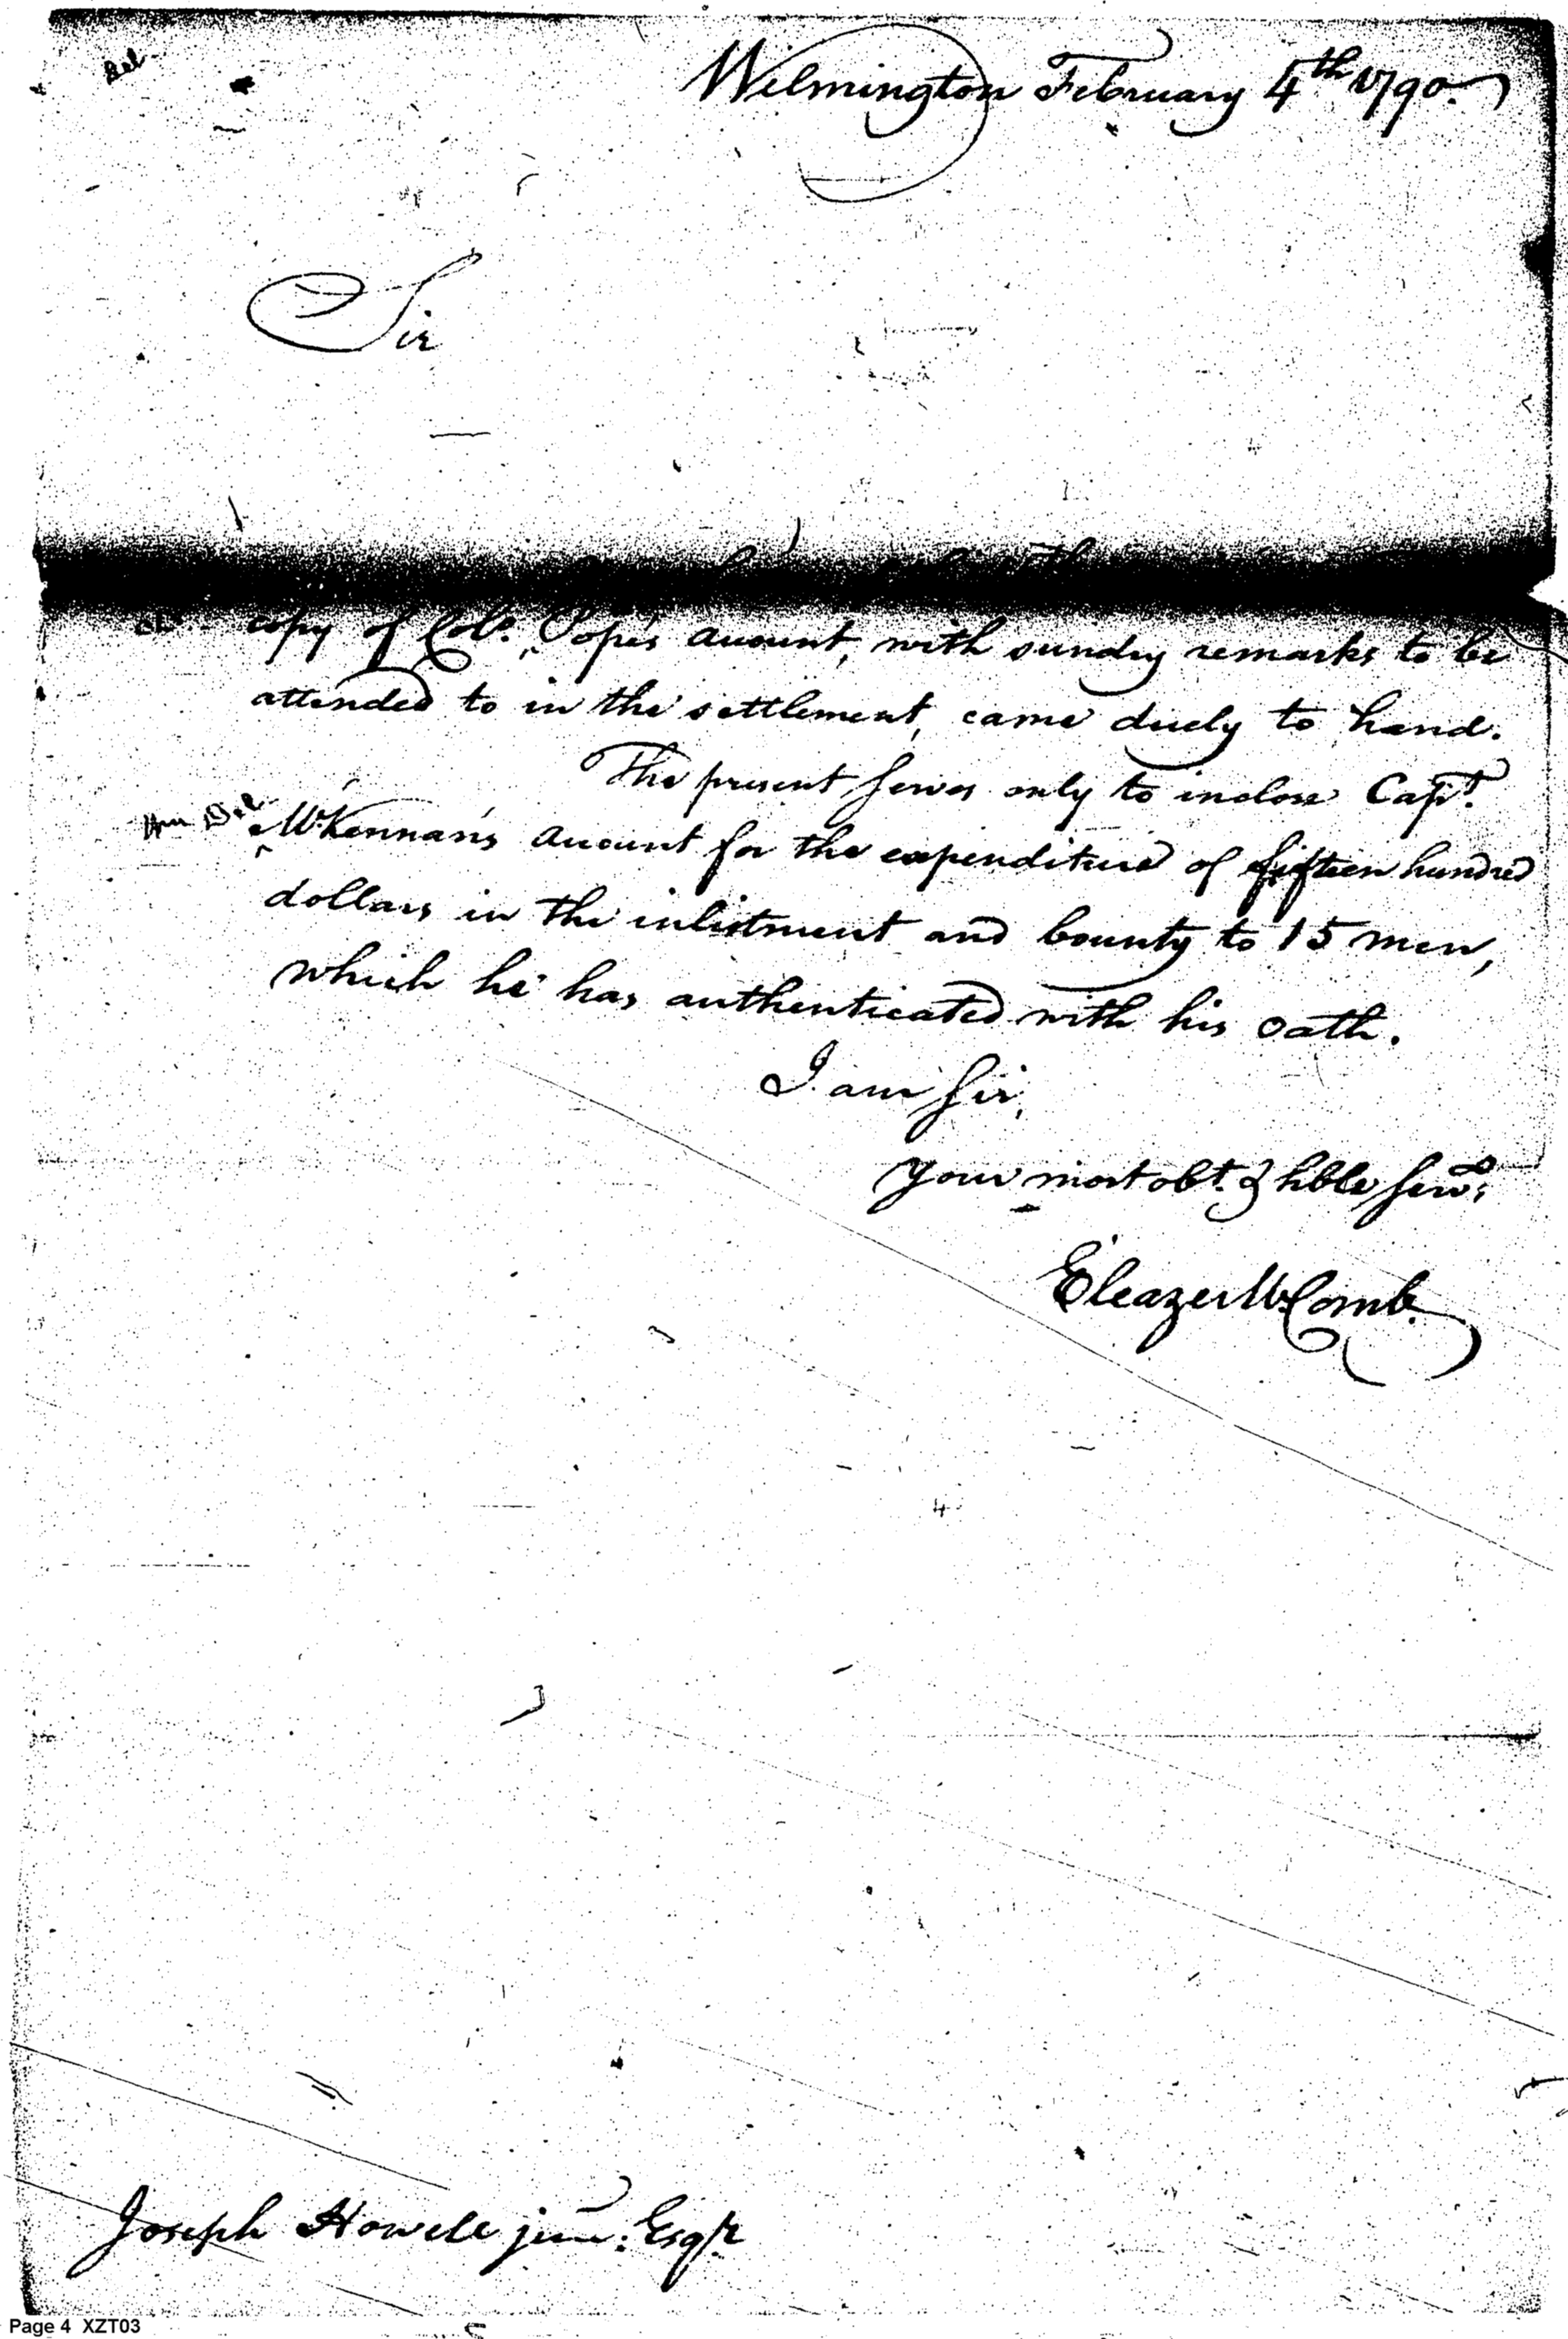 Del
Wilmington February 4th 1790.
Sir
copy of Colo. Pope's account, with sundry remarks to be
attended to in the settlement, came duely to hand.
The present serves only to inclose Capt.
Wm Del
McKennan's account for the expenditure of fifteen hundred
dollars in the inlistment and bounty to 15 men,
which he has authenticated with his oath.
I am Sir,
Your most obt. & hble servt.
Eleazer McComb
Joseph Howell junr: Esqr
Page 4 XZT03